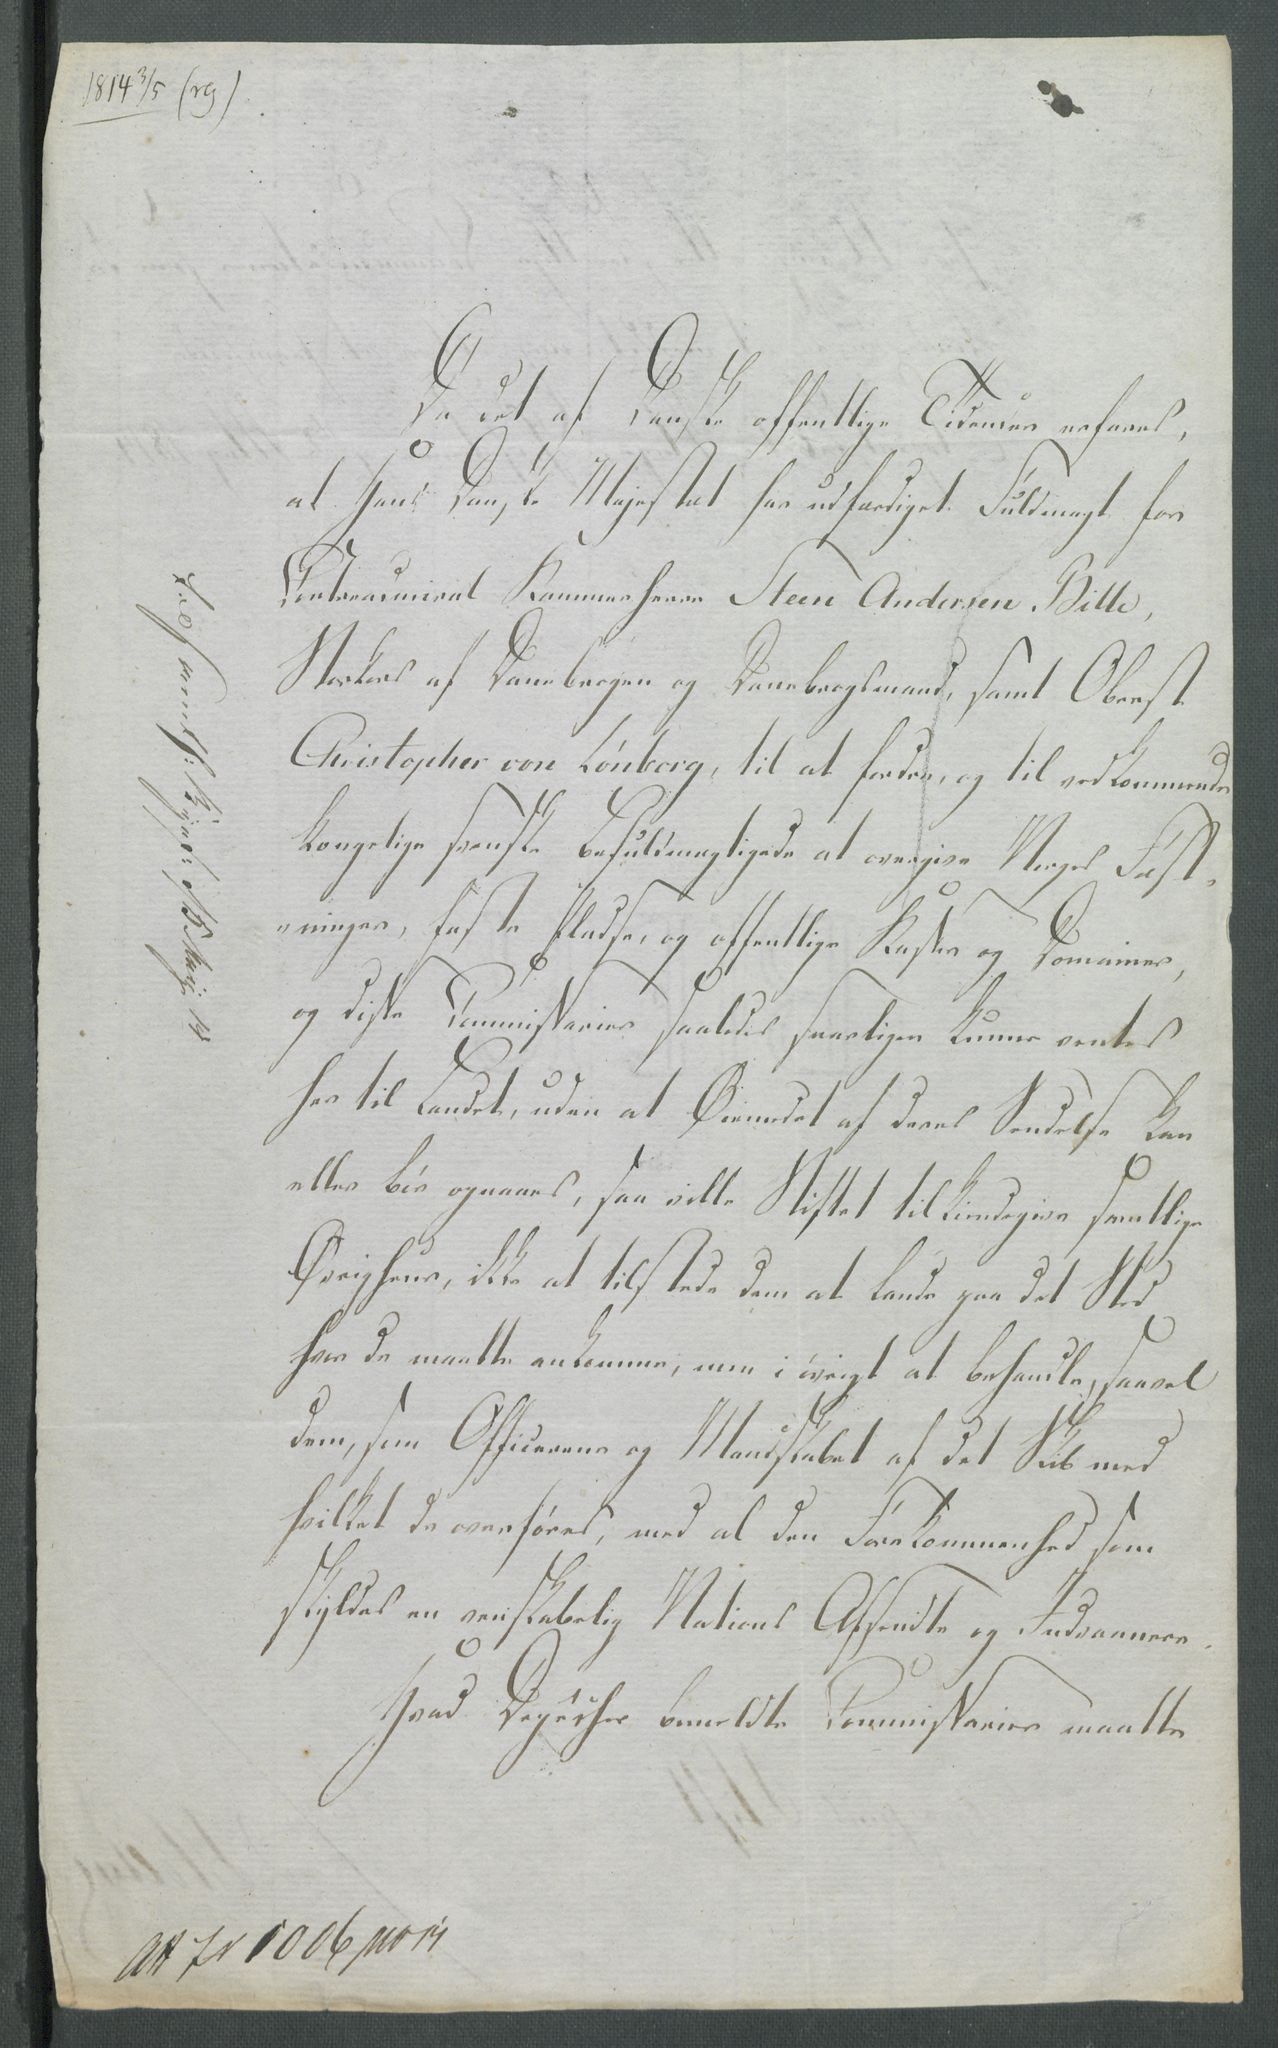 1814 3/5 (rg)
Da det af Danske offentlige Tidender erfares,
at Hans Danske Majestæt har udfærdiget Fuldmagt for
Contreadmiral Kammerherre Steen Andersen Bille,
Storkors af Dannebrogen og Dannebrogsmand, samt Oberst
Christopher von Lönborg, til at fordre, og til vedkommende
kongelige svenske befuldmægtigede at overgive Norges Fæst-
ninger, faste Pladse, og offentlige Kasser og Domainer,
og disse Commissarier saaledes snarligen kunne ventes
her til Landet, uden at Øiemedet af deres Sendelse kan
eller bør opnaaes, saa ville Stiftet tilkiendegive samtlige
Øvrigheder, ikke at tilstede dem at lande paa det Sted
hvor de maatte ankomme, men i øvrigt at behandle, saavel
dem, som Officererne og Mandskabet af det Skib med
hvilket de overføres, med al den Forekommenhed som
skyldes en venskabelig Nations Afsendte og Indvaanere.
Hvad Depecher bemeldte Commissarier maatte